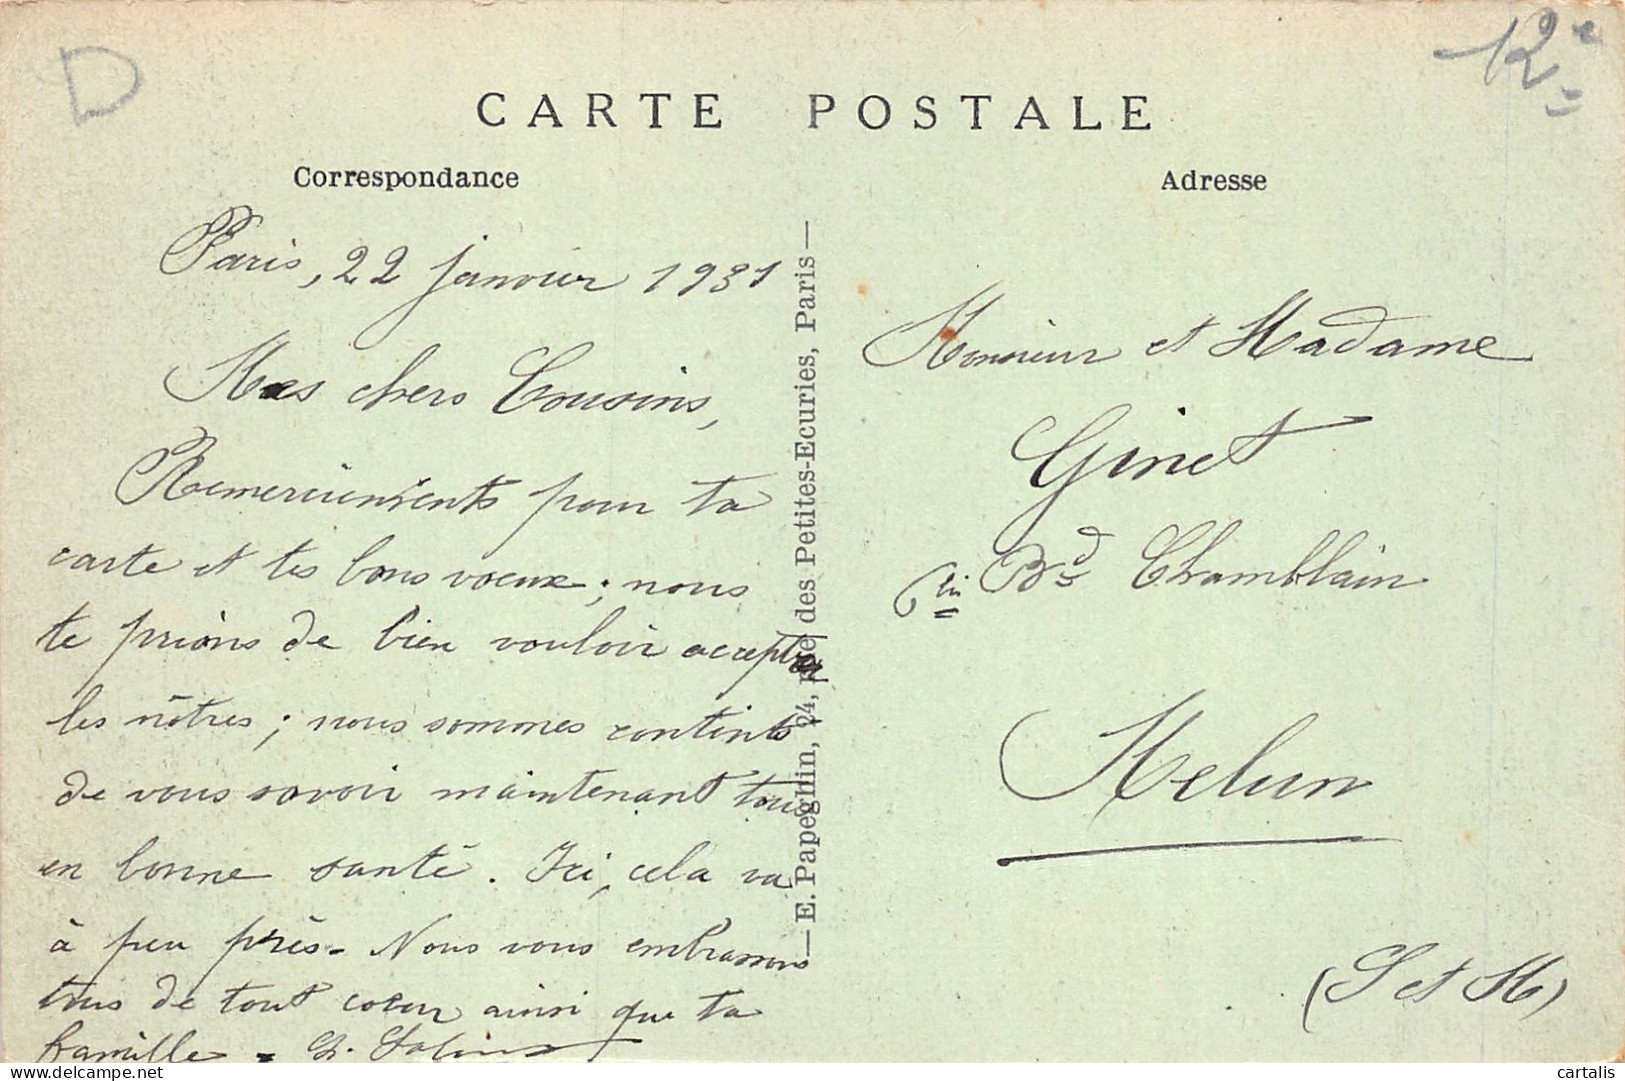 D
12e
CARTE POSTALE
Correspondance
Adresse
Paris, 22 janvier 1931
Mes chers Cousins,
Remerciements pour ta
carte et tes bons voeux ; nous
te prions de bien vouloir accepter
les nôtres ; nous sommes contents
de vous savoir maintenant tous
en bonne santé. Ici, cela va
à peu près. Nous vous embrassons
tous de tout coeur ainsi que ta
famille.
— E. Papeghin, 24, rue des Petites-Ecuries, Paris —
Monsieur et Madame
Ginet
6 Bd Chamblain
Melun
(S et M)
cartalis